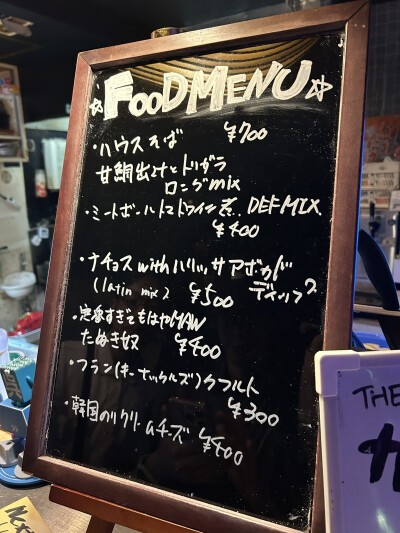 ☆FOOD MENU☆
・ハウスそば ¥700
甘鯛出汁とトリガラ
ロングmix
・ミートボールトマトワイン煮 DEF MIX
¥400
・ナチョス withハリッサアボカド
(latin mix) ¥500 ディップ
・定番すぎてもはやMAW
たぬき奴 ¥400
・フラン(キーナックルズ)クフルト
¥300
・韓国のりクリームチーズ ¥400
THE